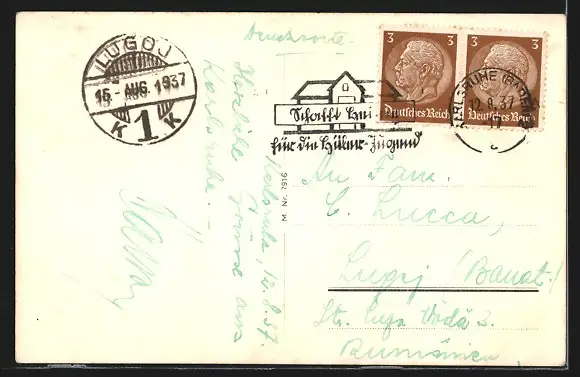 Drucksache.
LUGOJ
15- AUG. 1937
K 1 K
3 3
Deutsches Reich Deutsches Reich
KARLSRUHE (BADEN)
12.8.37
Schafft Hei
für die Hitler-Jugend
Karlsruhe, 12.8.37.
Herzliche Grüsse aus
Karlsruhe. -
M. Nr. 7916
An Fam.
C. Lucca,
Lugoj (Banat)
Str. Vodă 3.
Rumänien